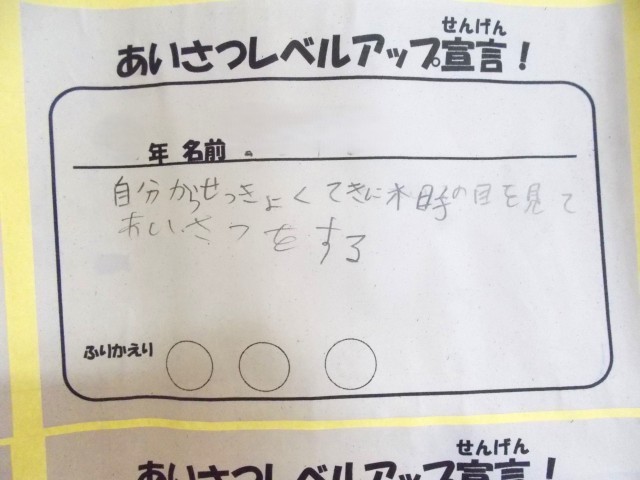 せんげん
あいさつレベルアップ宣言！
年 名前
自分からせっきょくてきに相手の目を見て
あいさつをする
ふりかえり
せんげん
あいさつレベルアップ宣言！